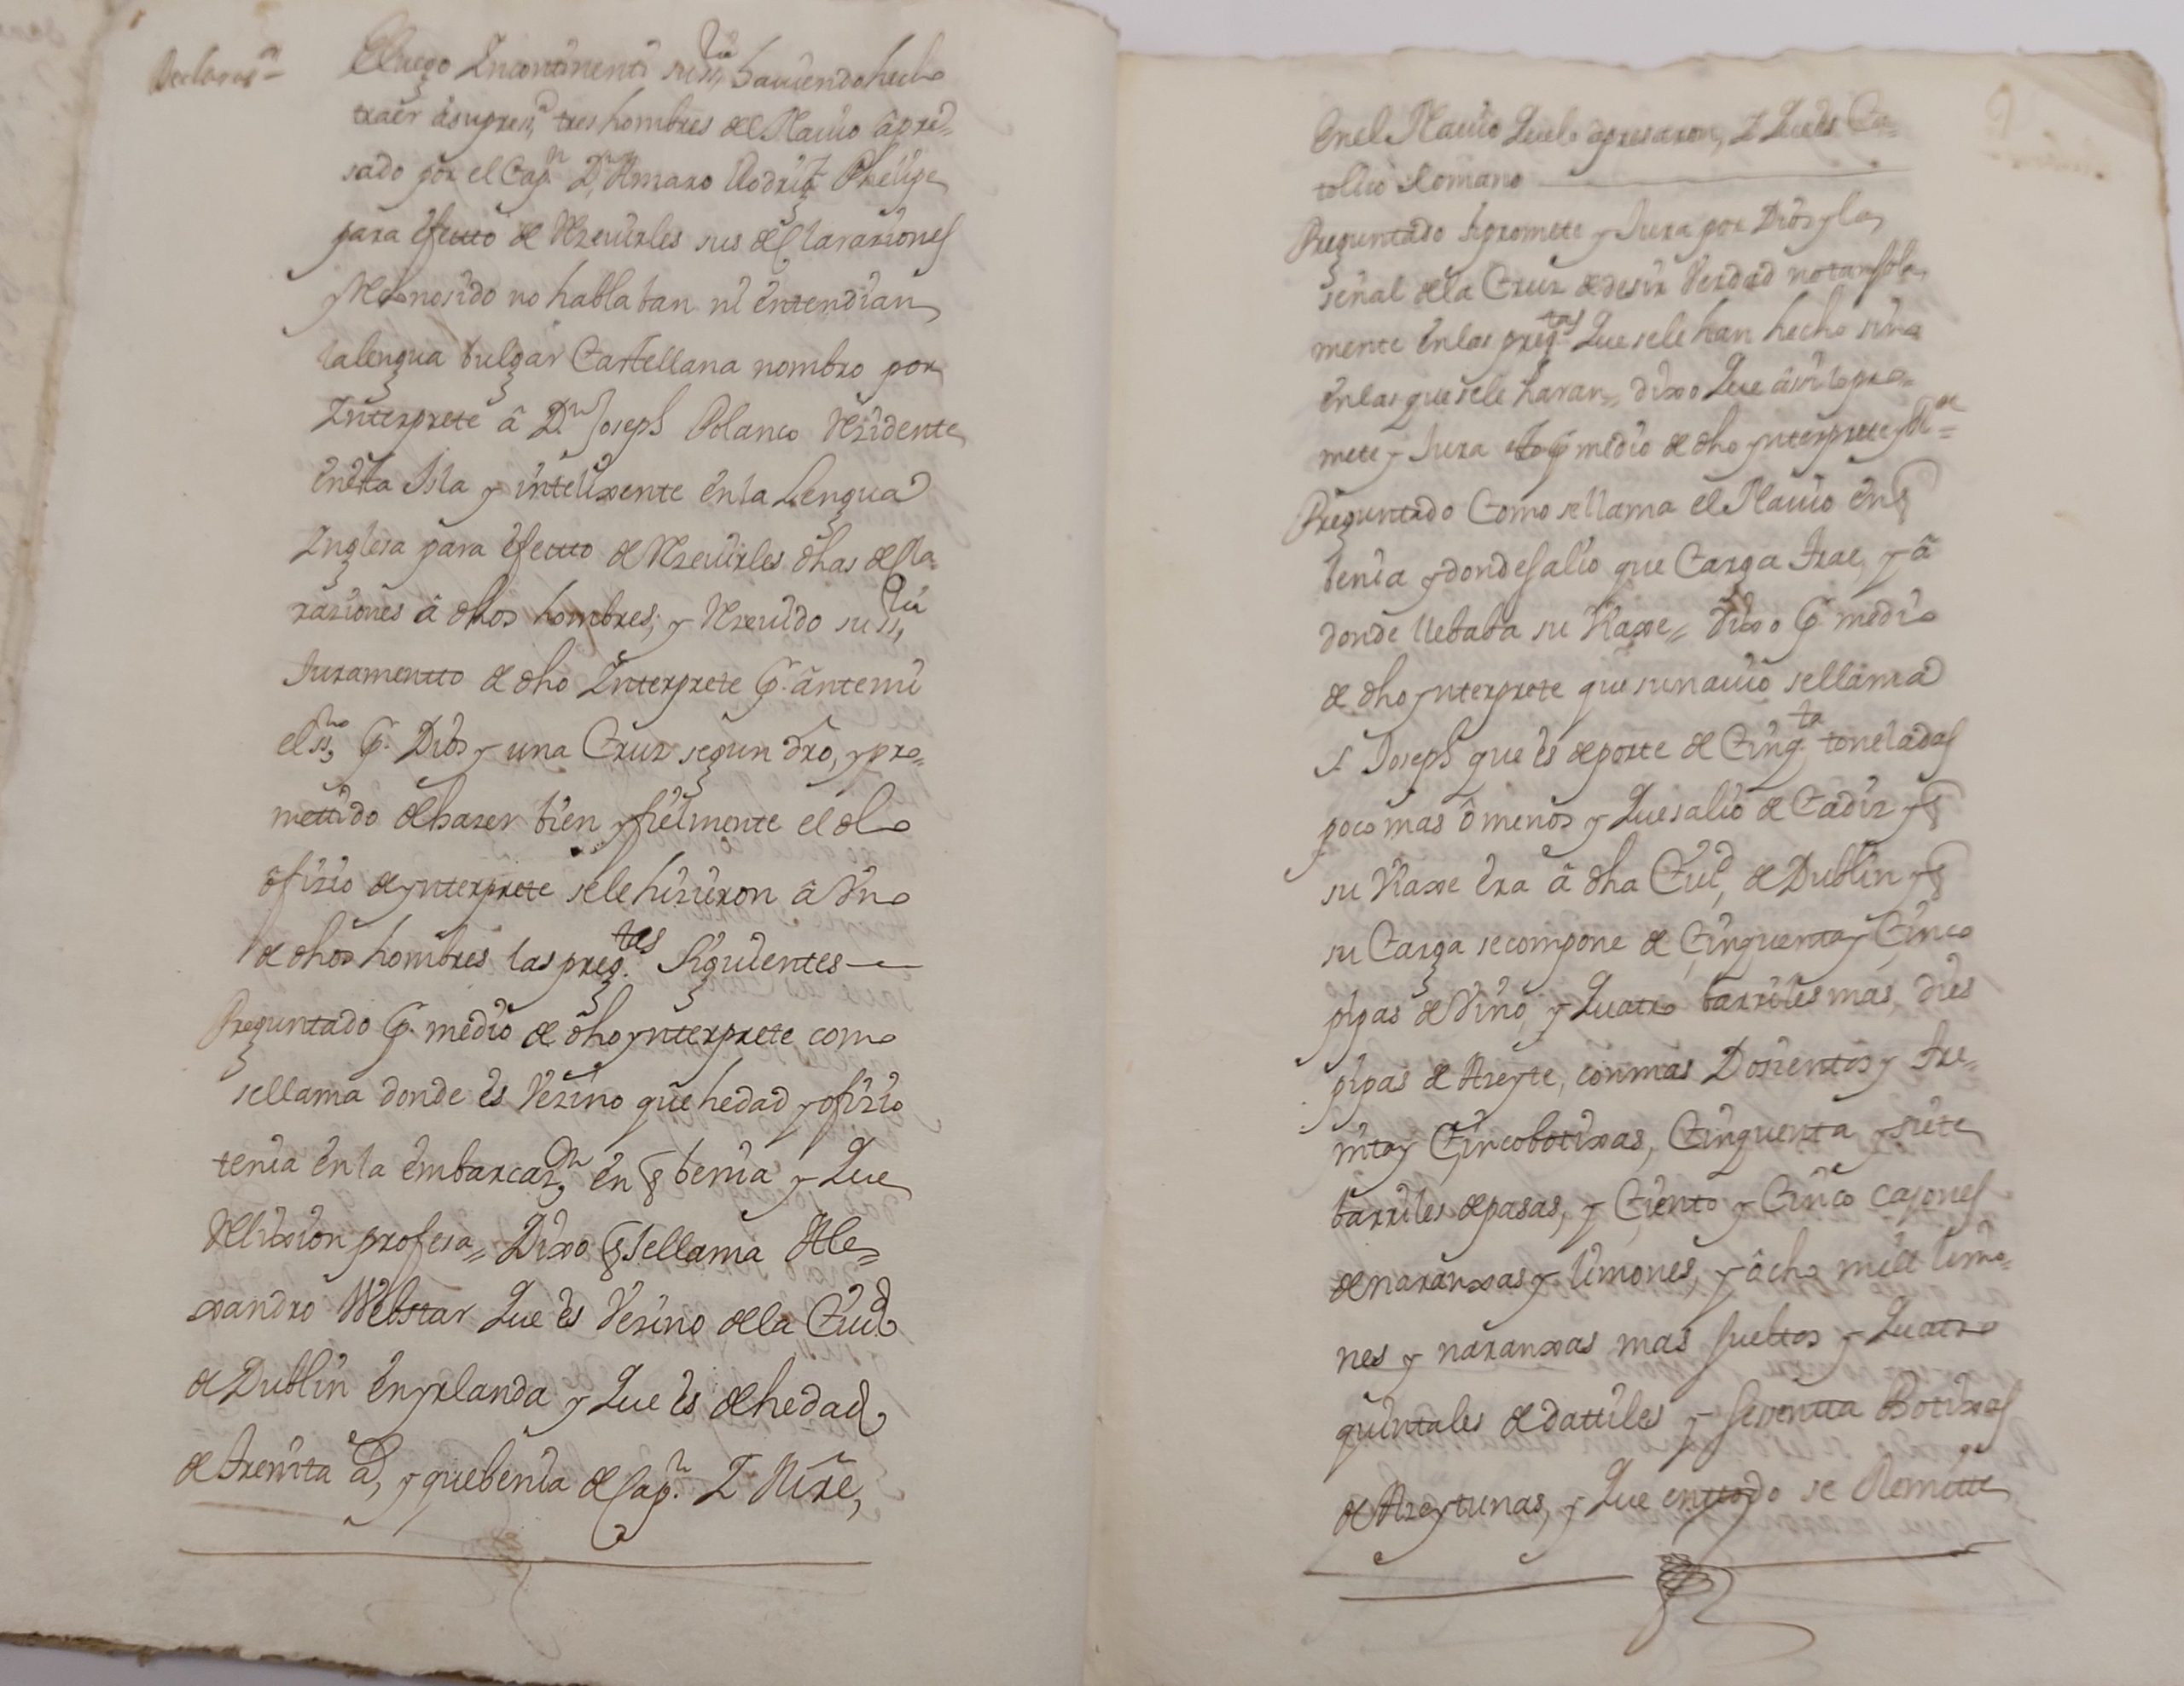 Declaraz.on
E luego Incontinenti su ss.ria haviendo hecho
traer a su pres.a tres hombres del Navio apre=
sado por el Cap.n D.n Amaro Rodrig.z Phelipe
para efecto de Rezevirles sus declaraziones
y Reconosido no hablaban ni entendian
la lengua bulgar Castellana nombro por
Interprete â D.n Joseph Polanco Rezidente
en esta Isla y intelixente en la Lengua
Inglesa para efecto de Rezevirles dhas decla=
raziones â dhos hombres; y Rezevido su ss.ria
Juramentto de dho Interprete p.r ante mi
el ss.no p.r Dios y una Cruz segun dro, y pro=
mettido de hazer bien y fielmente el dho
ofizio de ynterprete se le hizieron â Uno
de dhos hombres las preg.tas siguientes
Preguntado p.r medio de dho ynterprete como
se llama donde es Vezino que hedad y ofizio
tenia en la embarcaz.on en q benia y Que
Relixion profesa= Dixo q se llama Ale=
xandro Webstar Que es Vezino de la Ciud.d
de Dublin en yrlanda y Que es de hedad
de treinta a.s, y que benia de Cap.n I Mre,
en el Navio Que le apresaron, I Que es Ca=
tolico Romano
Preguntado si promete y Jura por Dios y la
señal de la Cruz de desir Verdad no tan sola
mente en las preg.tas Que se le han hecho sino
en las que se le haran= dixo Que asi lo pro=
mete y Jura p.r medio de dho ynterprete y R.de=
Preguntado Como se llama el Navio en q
benia y donde salio que Carga trae, y â
donde llebaba su Viaxe= dixo p.r medio
de dho ynterprete que su navio se llama
S. Joseph que es de porte de Cinq.ta toneladas
poco mas ô menos y Que salio de Cadiz y q
su Viaxe era â dha Ciu.d de Dublin y q
su Carga se compone de Cinquenta y Cinco
pipas de Vino, y Quatro barriles mas, dies
pipas de Azeyte, con mas Dosientas y tre=
inta y Cinco botixas, Cinquenta y siete
barriles de pasas, y Ciento y Cinco cajones
de naranxas y limones, y ocho mill limo=
nes y naranxas mas sueltos y Quatro
quintales de dattiles y sesentta Botixas
de Azeytunas, y Que en todo se Remitte